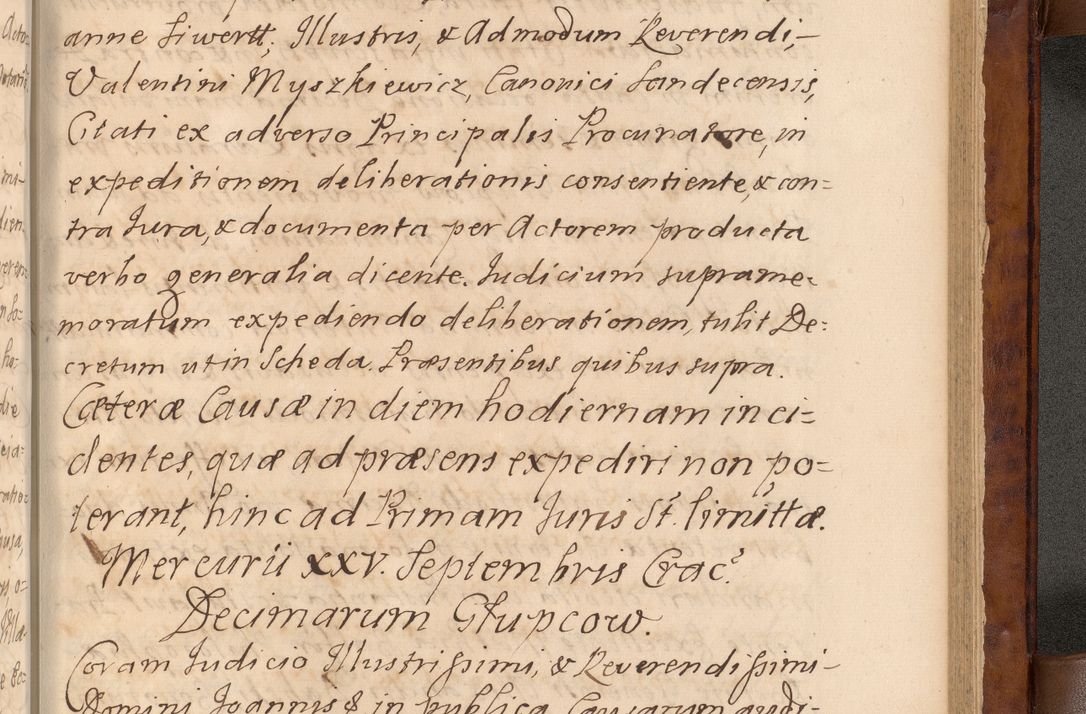 anne Siwertt, Illustris, & Admodum Reverendi,
Valentini Myszkiewicz, Canonici Sandecensis,
Citati ex adverso Principalis Procuratore, in
expeditionem deliberationis consentiente, & con=
tra Jura, & documenta per Actorem producta
verbo generalia dicente. Judicium suprame=
moratum expediendo deliberationem, tulit De=
cretum ut in Scheda. Præsentibus quibus supra.
Cæteræ Causæ in diem hodiernam inci=
dentes, quæ ad præsens expediri non po=
terant, hinc ad Primam Juris St. limittæ.
Mercurii XXV. Septembris Crac.
Decimarum Głupcow.
Coram Judicio Illustrissimi, & Reverendissimi
Domini Joannis & in publica Causarum audi=